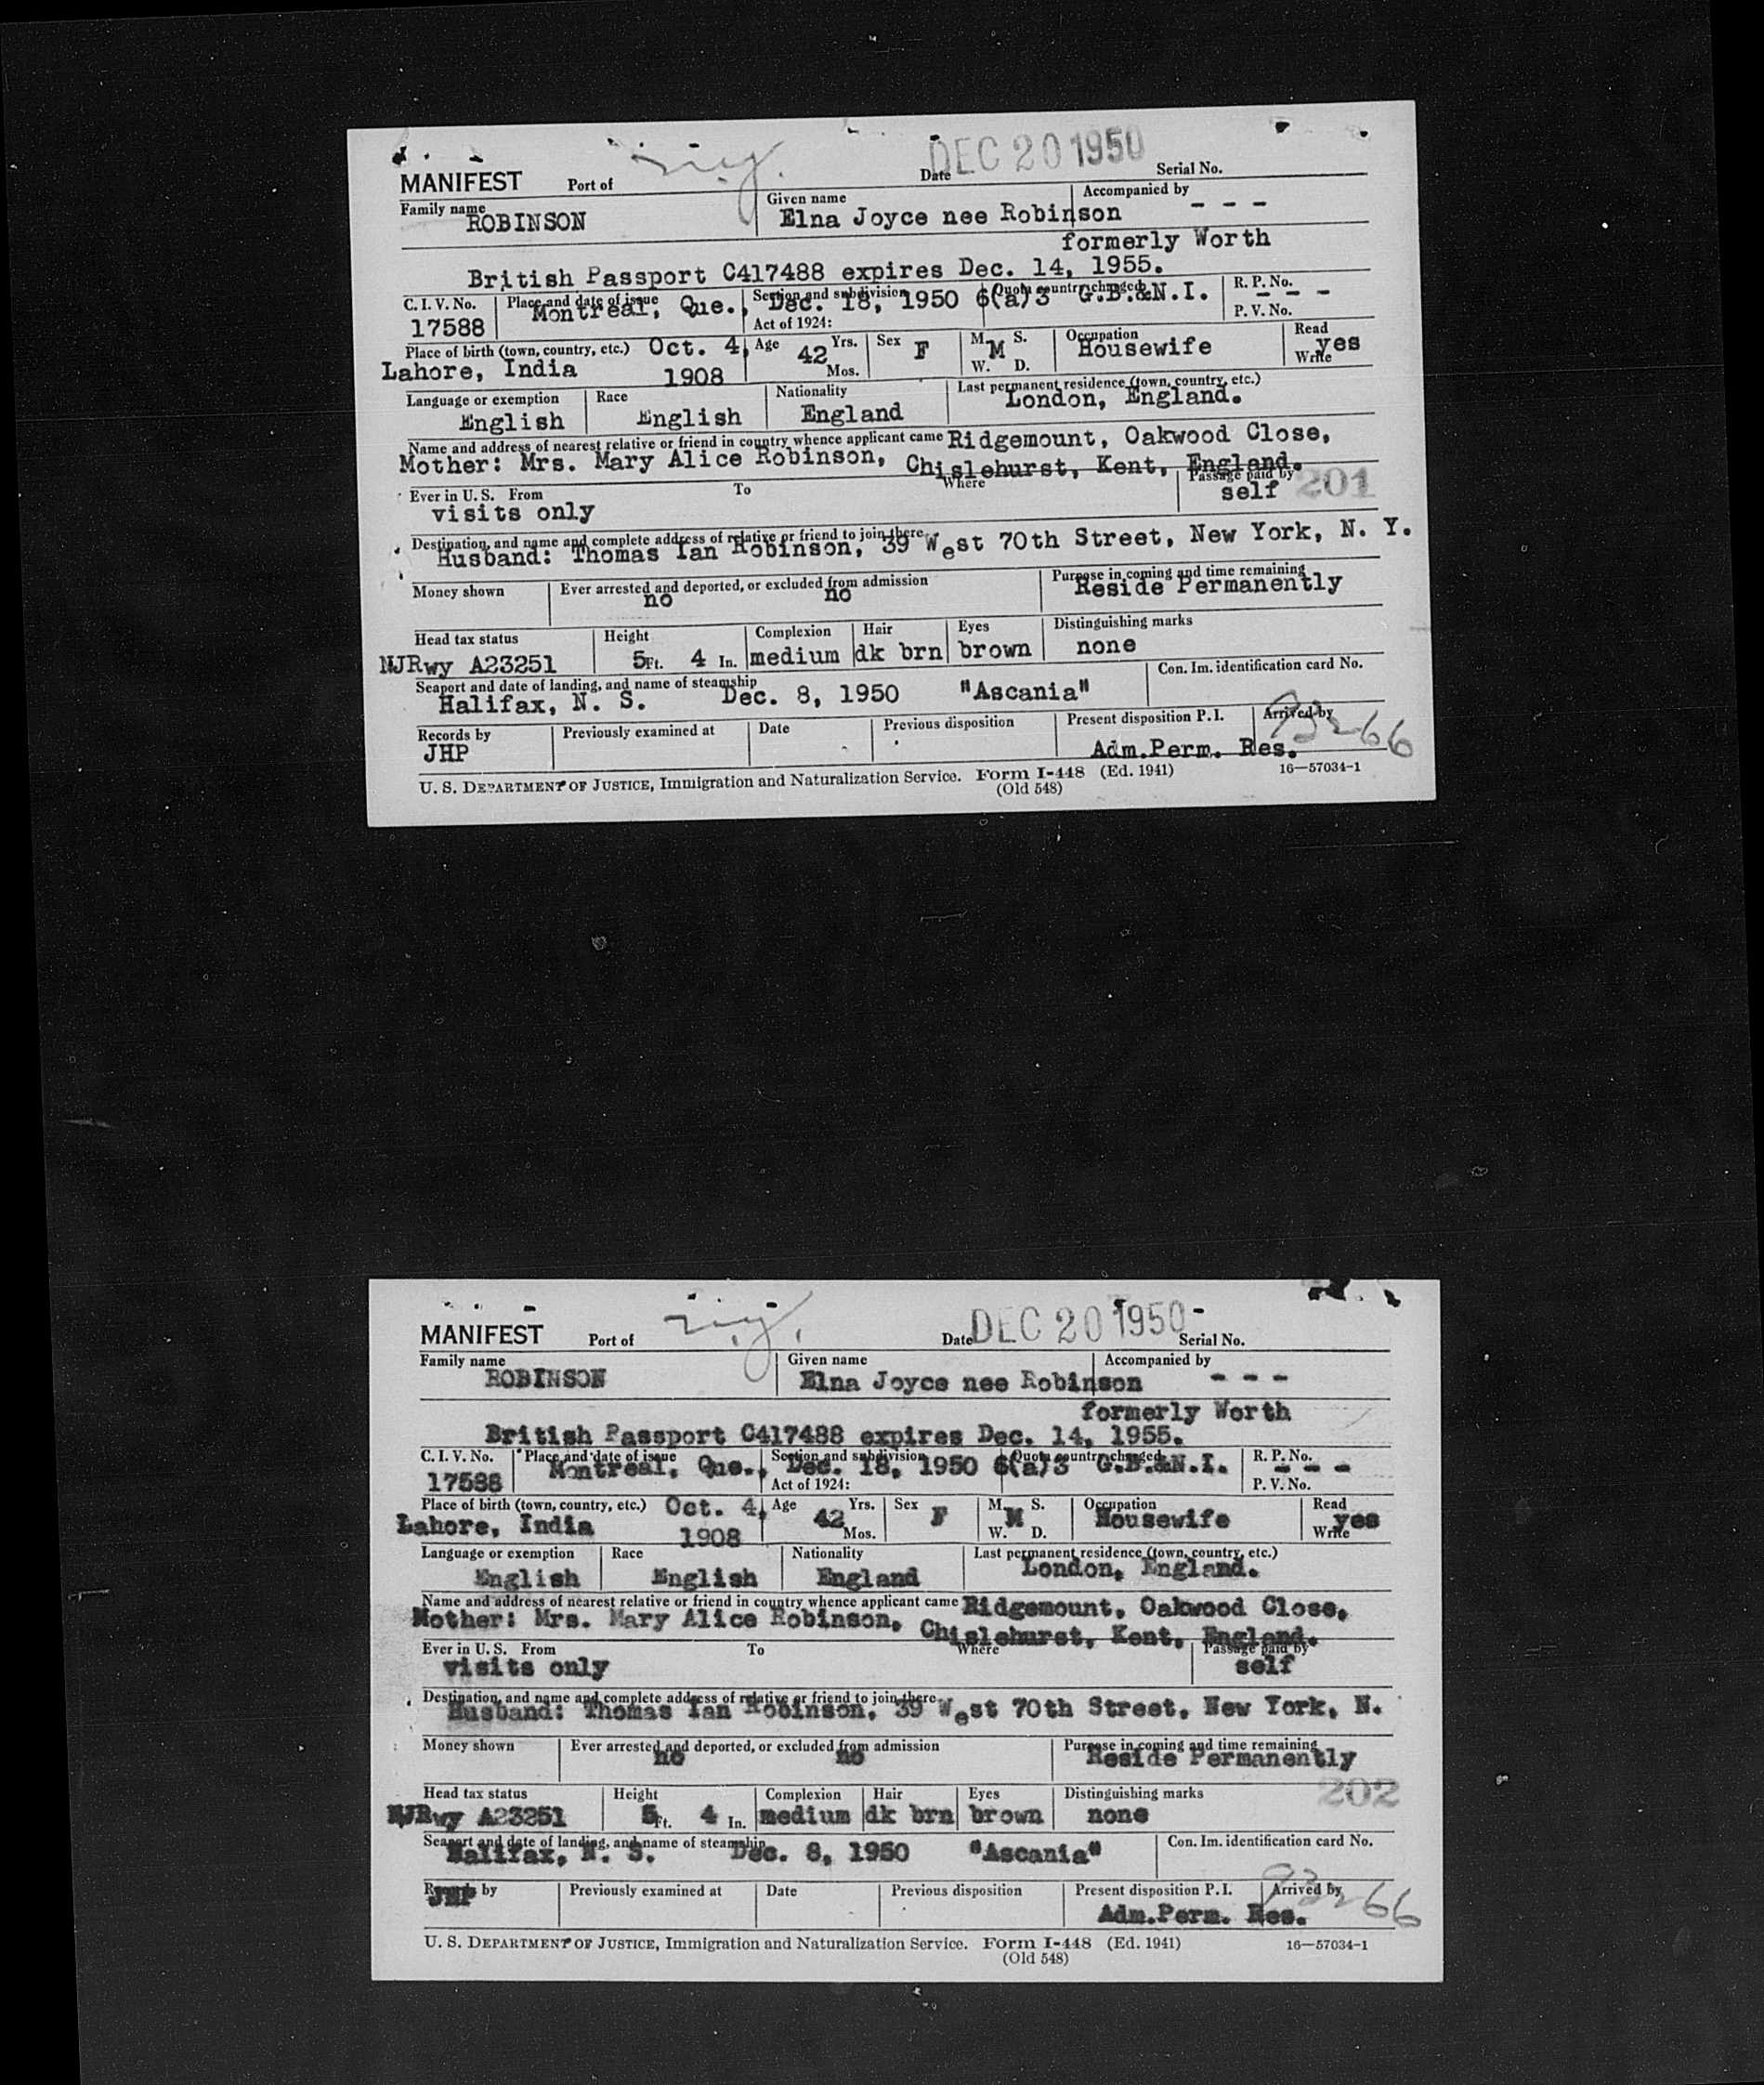 MANIFEST Port of n.y. Date DEC 20 1950 Serial No.
Family name ROBINSON Given name Elna Joyce nee Robinson Accompanied by - - -
formerly Worth
British Passport C417488 expires Dec. 14, 1955.
C. I. V. No. Place and date of issue Section and subdivision Quota country charged R. P. No. - - -
17588 Montreal, Que., Dec. 18, 1950 6(a)3 G.B.&N.I.
Act of 1924: P. V. No.
Place of birth (town, country, etc.) Oct. 4, Age 42 Yrs. Mos. Sex F M. S. M W. D. Occupation Housewife Read yes Write
Lahore, India 1908
Language or exemption Race Nationality Last permanent residence (town, country, etc.)
English English England London, England.
Name and address of nearest relative or friend in country whence applicant came Ridgemount, Oakwood Close,
Mother: Mrs. Mary Alice Robinson, Chislehurst, Kent, England.
Ever in U. S. From To Where Passage paid by
visits only self 201
Destination, and name and complete address of relative or friend to join there
Husband: Thomas Ian Robinson, 39 West 70th Street, New York, N. Y.
Money shown Ever arrested and deported, or excluded from admission Purpose in coming and time remaining
no no Reside Permanently
Head tax status Height Complexion Hair Eyes Distinguishing marks
NJRwy A23251 5 Ft. 4 In. medium dk brn brown none
Seaport and date of landing, and name of steamship Con. Im. identification card No.
Halifax, N. S. Dec. 8, 1950 "Ascania"
Records by Previously examined at Date Previous disposition Present disposition P. I. Arrived by
JHP Adm.Perm. Res.
U. S. DEPARTMENT OF JUSTICE, Immigration and Naturalization Service. Form I-448 (Ed. 1941) 16—57034-1
(Old 548)
MANIFEST Port of n.y. Date DEC 20 1950 Serial No.
Family name ROBINSON Given name Elna Joyce nee Robinson Accompanied by - - -
formerly Worth
British Passport C417488 expires Dec. 14, 1955.
C. I. V. No. Place and date of issue Section and subdivision Quota country charged R. P. No. - - -
17588 Montreal, Que., Dec. 18, 1950 6(a)3 G.B.&N.I.
Act of 1924: P. V. No.
Place of birth (town, country, etc.) Oct. 4, Age 42 Yrs. Mos. Sex F M. S. M W. D. Occupation Housewife Read yes Write
Lahore, India 1908
Language or exemption Race Nationality Last permanent residence (town, country, etc.)
English English England London, England.
Name and address of nearest relative or friend in country whence applicant came Ridgemount, Oakwood Close,
Mother: Mrs. Mary Alice Robinson, Chislehurst, Kent, England.
Ever in U. S. From To Where Passage paid by
visits only self
Destination, and name and complete address of relative or friend to join there
Husband: Thomas Ian Robinson, 39 West 70th Street, New York, N.
Money shown Ever arrested and deported, or excluded from admission Purpose in coming and time remaining
no no Reside Permanently
Head tax status Height Complexion Hair Eyes Distinguishing marks 202
NJRwy A23251 5 Ft. 4 In. medium dk brn brown none
Seaport and date of landing, and name of steamship Con. Im. identification card No.
Halifax, N. S. Dec. 8, 1950 "Ascania"
Records by Previously examined at Date Previous disposition Present disposition P. I. Arrived by
JHP Adm.Perm. Res.
U. S. DEPARTMENT OF JUSTICE, Immigration and Naturalization Service. Form I-448 (Ed. 1941) 16—57034-1
(Old 548)